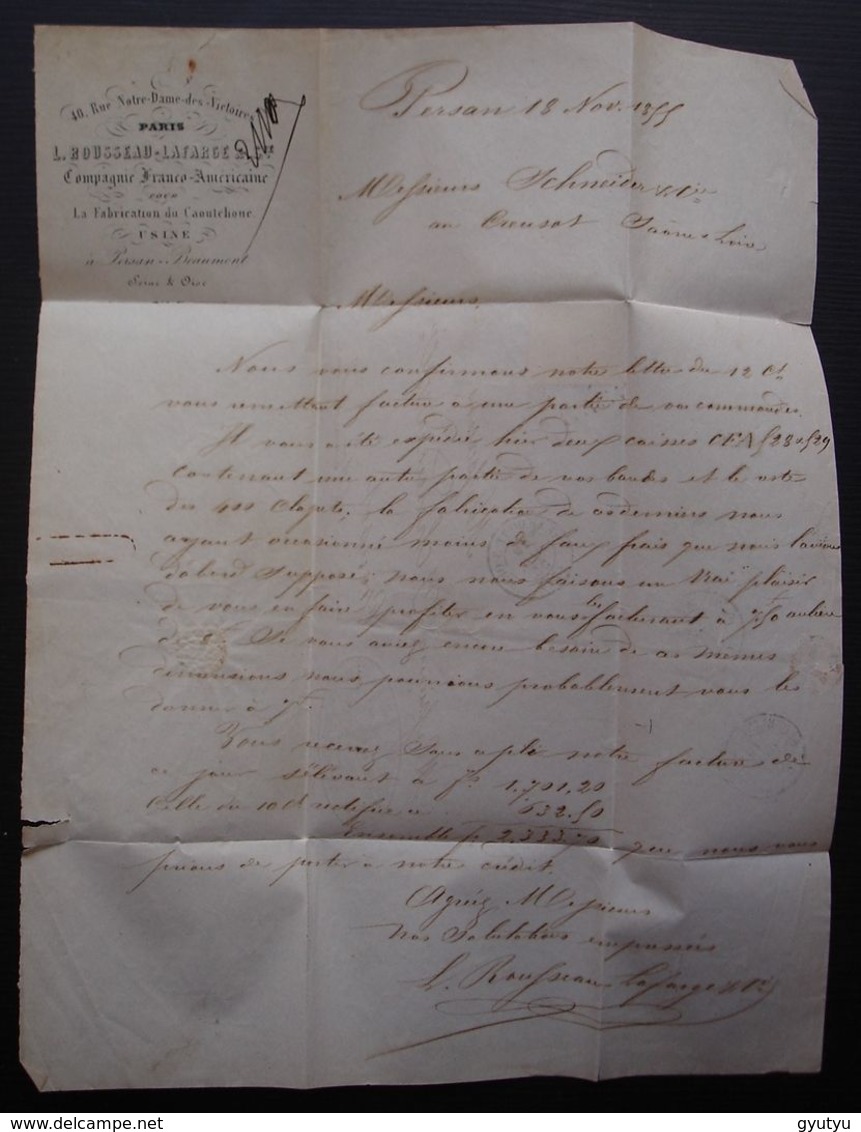 40, Rue Notre-Dame-des-Victoires
PARIS
L. ROUSSEAU-LAFARGE & Cie
Compagnie Franco-Américaine
POUR
La Fabrication du Caoutchouc
USINE
à Persan-Beaumont
Seine & Oise
Persan 18 Nov. 1855
Messieurs Schneider & Cie
au Creusot Saône & Loire
Messieurs,
Nous vous confirmons notre lettre du 12 Ct
vous remettant facture d'une partie de vos commandes.
Il vous a été expédié hier deux caisses CFA 528 & 529
contenant une autre partie de vos bandes et le reste
des 400 Clapets; la fabrication de ces derniers nous
ayant occasionné moins de faux frais que nous l'avions
d'abord supposé, nous nous faisons un vrai plaisir
de vous en faire profiter en vous les facturant à 7,50 au lieu
de 8f. Si vous aviez encore besoin de ces mêmes
dimensions nous pourrions probablement vous les
donner à 7f.
Vous recevez sous ce pli notre facture de
ce jour s'élevant à f. 1,701,20
Celle du 10 Ct 632.50
Ensemble f. 2,333.70 que nous vous
prions de porter à notre crédit.
Agréez Messieurs
nos Salutations empressées
L. Rousseau Lafarge & Cie
gyutyu